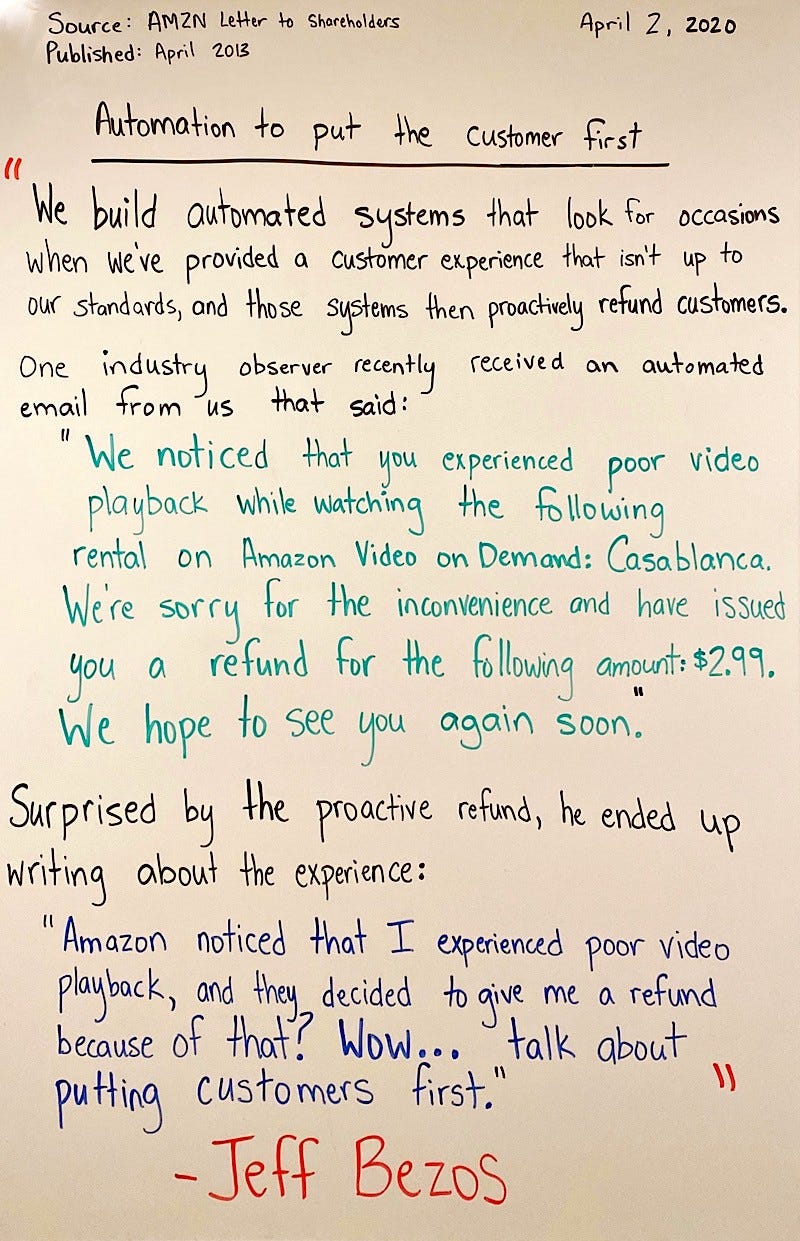 Source: AMZN Letter to Shareholders April 2, 2020
Published: April 2013
Automation to put the customer first
"We build automated systems that look for occasions
when we've provided a customer experience that isn't up to
our standards, and those systems then proactively refund customers.
One industry observer recently received an automated
email from us that said:
"We noticed that you experienced poor video
playback while watching the following
rental on Amazon Video on Demand: Casablanca.
We're sorry for the inconvenience and have issued
you a refund for the following amount: $2.99.
We hope to see you again soon."
Surprised by the proactive refund, he ended up
writing about the experience:
"Amazon noticed that I experienced poor video
playback, and they decided to give me a refund
because of that? Wow... talk about
putting customers first.""
- Jeff Bezos